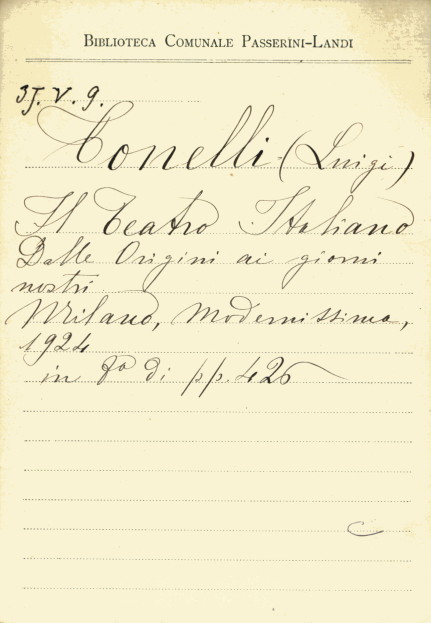 BIBLIOTECA COMUNALE PASSERINI-LANDI
3J.V.9.
Tonelli (Luigi)
Il Teatro Italiano
Dalle Origini ai giorni
nostri
Milano, Modernissima,
1924
in 8º di pp. 426
C